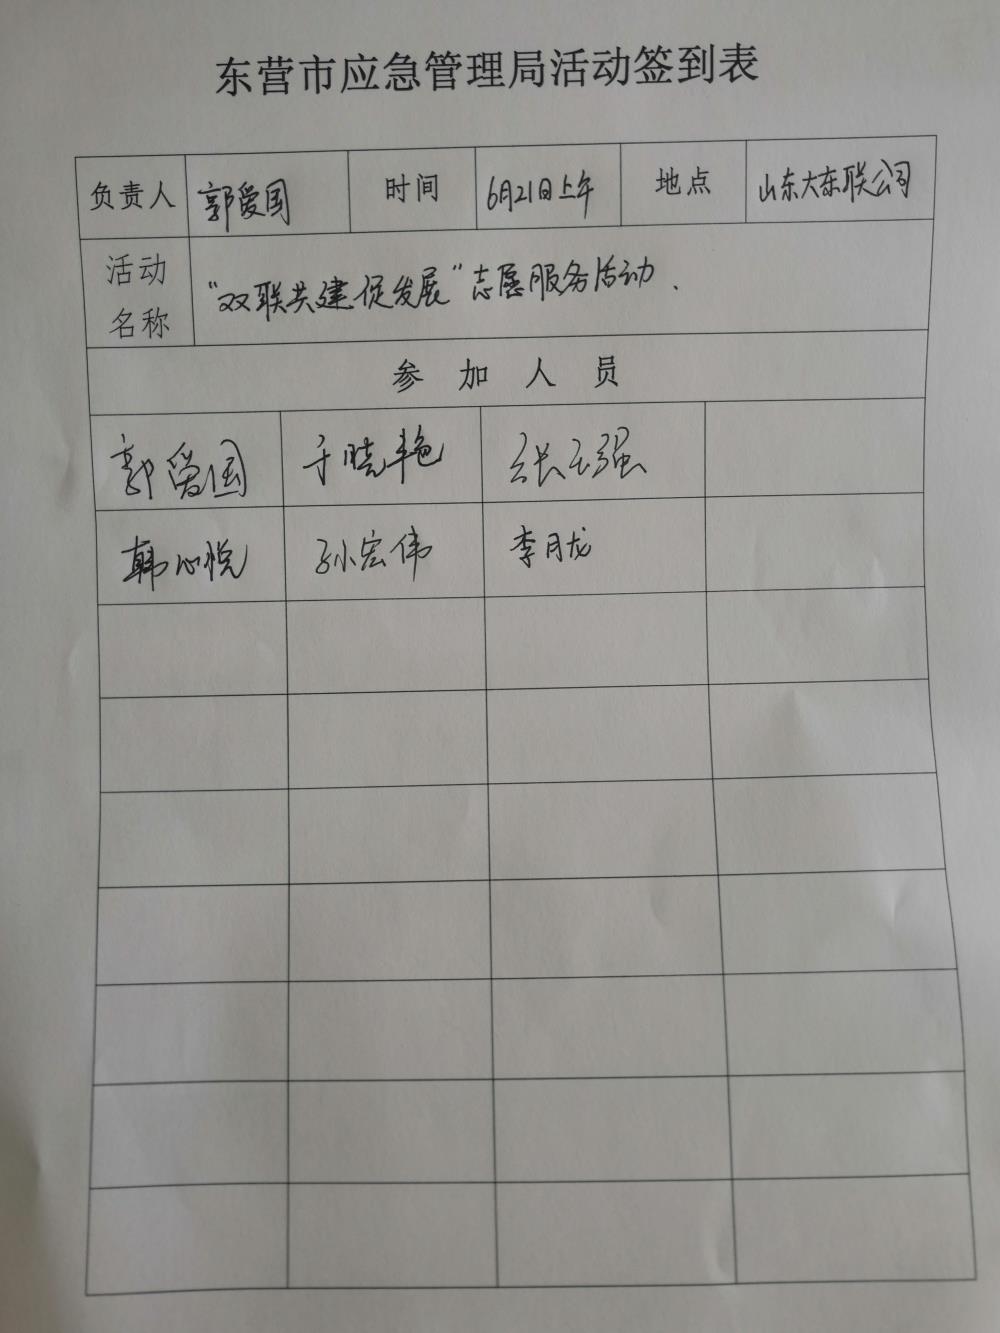 东营市应急管理局活动签到表
负责人 郭爱国 时间 6月21日上午 地点 山东大东联公司
活动名称 “双联共建促发展”志愿服务活动、
参加人员
郭爱国 于晓艳 张玉强
韩心悦 孙宏伟 李月龙